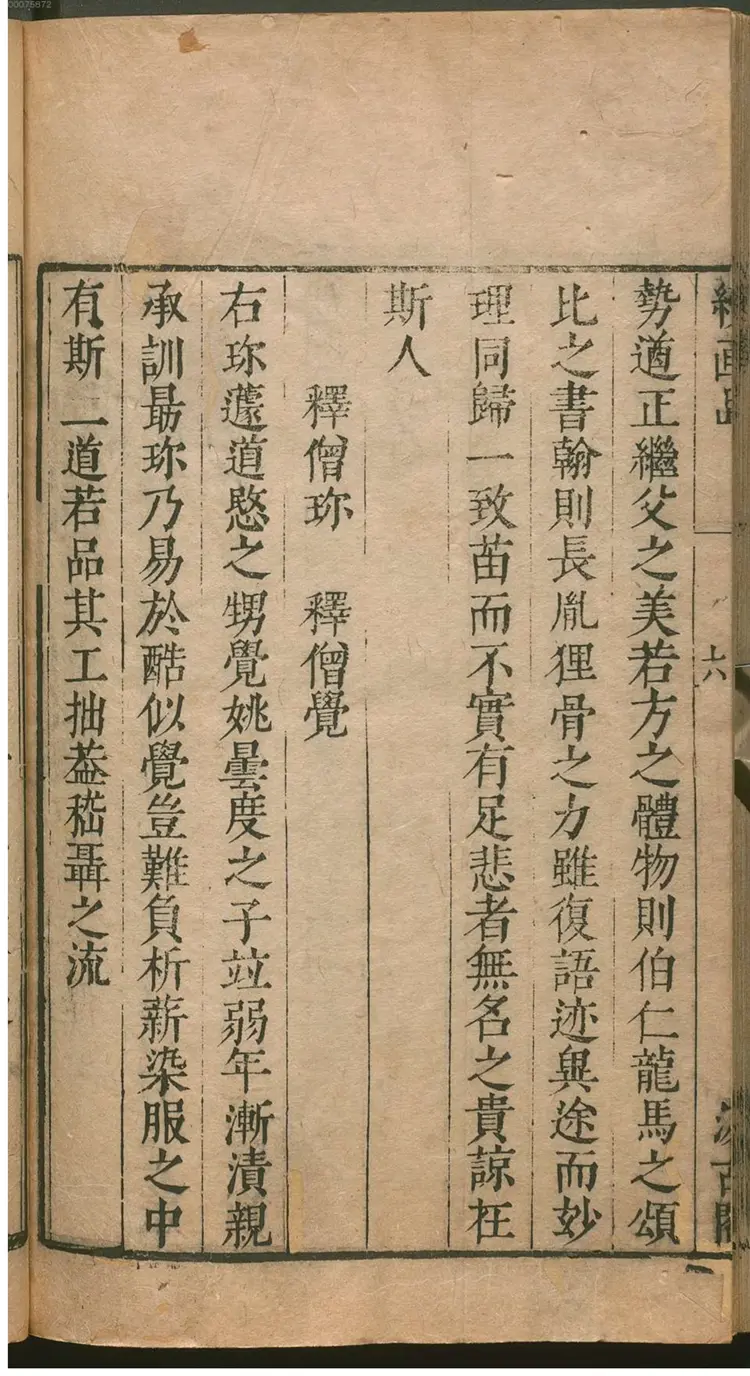 00075872
續画品
六
汲古閣
勢遒正繼父之美若方之體物則伯仁龍馬之頌
比之書翰則長胤狸骨之力雖復語迹異途而妙
理同歸一致苗而不實有足悲者無名之貴諒在
斯人
釋僧珎 釋僧覺
右珎蘧道愍之甥覺姚曇度之子竝弱年漸漬親
承訓勗珎乃易於酷似覺豈難負析薪染服之中
有斯一道若品其工拙葢嵇聶之流